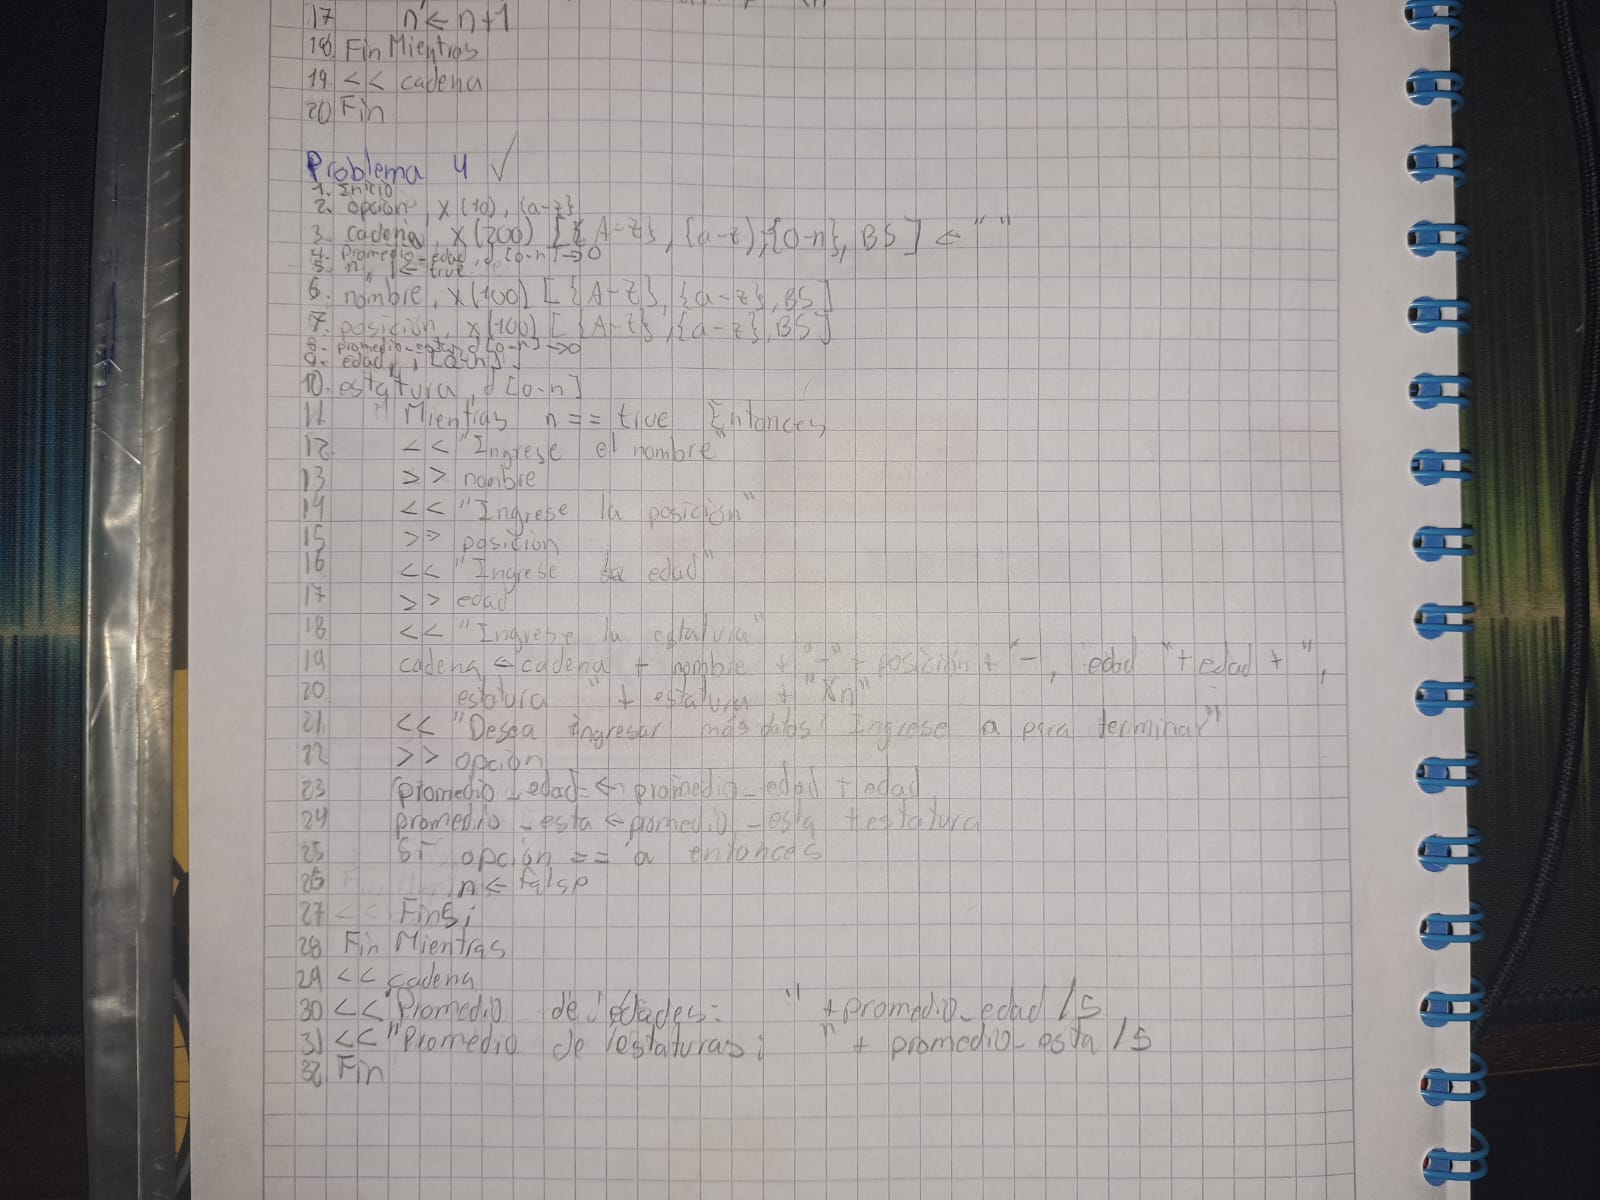 17 n ← n+1
18 Fin Mientras
19 << cadena
20 Fin
Problema 4 ✓
1. Inicio
2. opcion, X(10), {a-z}
3. cadena, X(200) [{A-Z}, {a-z}, {0-n}, BS] ← " "
4. Promedio-edad, d [0-n] → 0
5. n, ← true
6. nombre, X(100) [{A-Z}, {a-z}, BS]
7. posición, X(100) [{A-Z}, {a-z}, BS]
8. promedio-esta, d [0-n] → 0
9. edad, [0-n]
10. estatura, d [0-n]
11 Mientras n == true Entonces
12 << "Ingrese el nombre"
13 >> nombre
14 << "Ingrese la posición"
15 >> posición
16 << "Ingrese la edad"
17 >> edad
18 << "Ingrese la estatura"
19 cadena ← cadena + nombre + "-" + posición + "-, edad "+ edad + ",
20 estatura " + estatura + "\n"
21 << "Desea ingresar más datos? Ingrese a para terminar"
22 >> opción
23 promedio_edad ← promedio_edad + edad
24 promedio_esta ← promedio_esta + estatura
25 Si opción == a entonces
26 n ← false
27 << Finsi
28 Fin Mientras
29 << cadena
30 << "Promedio de Edades: " + promedio_edad /5
31 << "Promedio de estaturas: " + promedio_esta /5
32 Fin